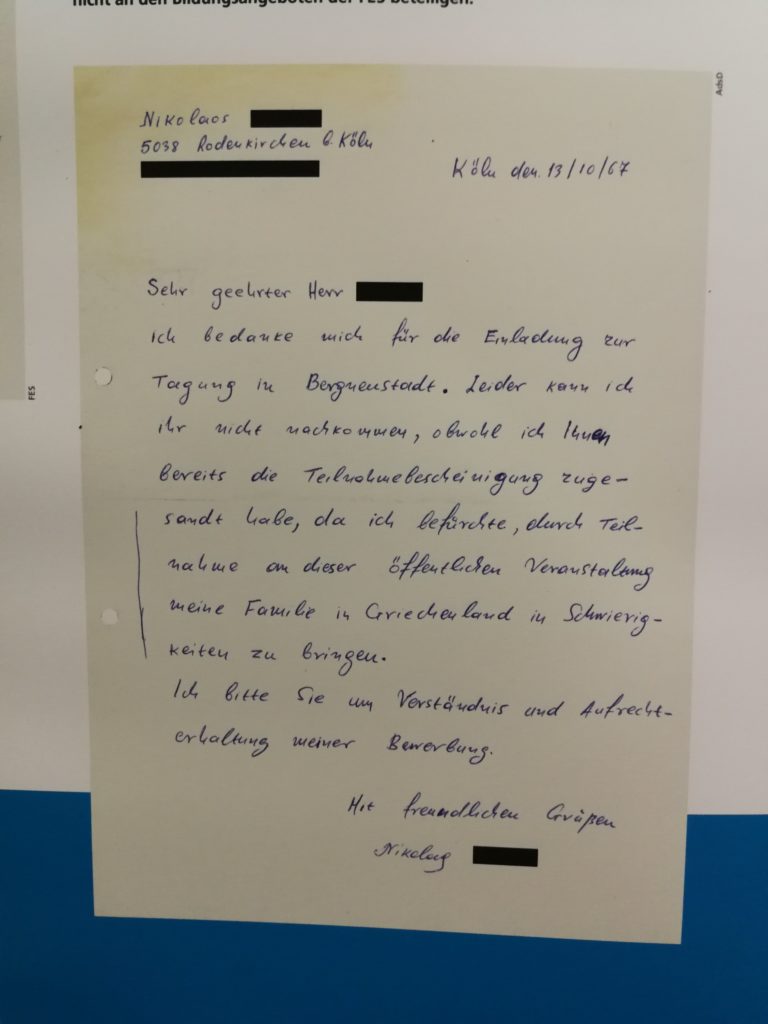 nicht an den Bildungsangeboten der FES beteiligen.
AdsD
FES
Nikolaos
5038 Rodenkirchen b. Köln
Köln den. 13/10/67
Sehr geehrter Herr
ich bedanke mich für die Einladung zur
Tagung in Bergneustadt. Leider kann ich
ihr nicht nachkommen, obwohl ich Ihnen
bereits die Teilnahmebescheinigung zuge-
sandt habe, da ich befürchte, durch Teil-
nahme an dieser öffentlichen Veranstaltung
meine Familie in Griechenland in Schwierig-
keiten zu bringen.
Ich bitte Sie um Verständnis und Aufrecht-
erhaltung meiner Bewerbung.
Mit freundlichen Grüßen
Nikolaos